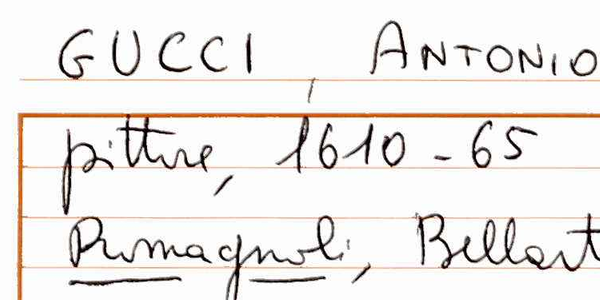 GUCCI, ANTONIO
pittore, 1610-65
Romagnoli, Bellart